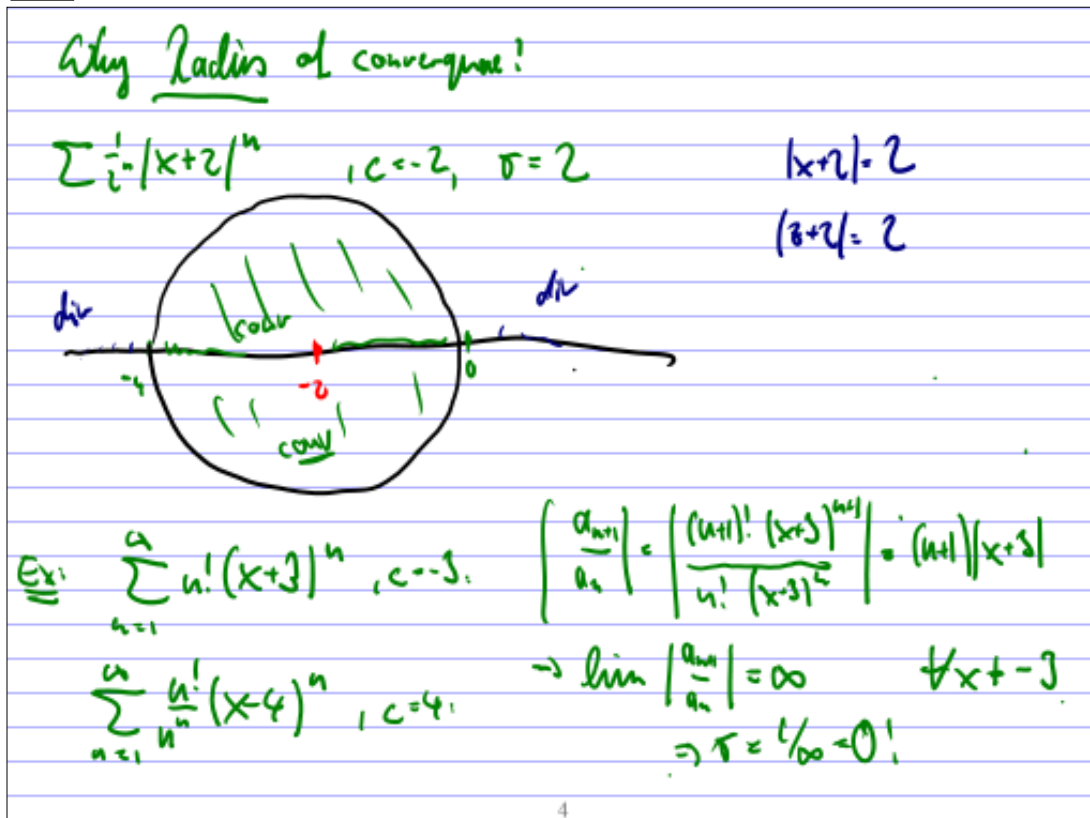 Why Radius of convergence!
∑ 1/2ⁿ |x+2|ⁿ , c=-2, r=2
|x+2|=2
|z+2|=2
div
conv
div
-4
-2
0
conv
Ex: ∑_{n=1}^{∞} n! (x+3)ⁿ , c=-3.
|a_{n+1}/a_n| = |(n+1)! (x+3)^{n+1} / n! (x+3)ⁿ| = (n+1)|x+3|
∑_{n=1}^{∞} n!/nⁿ (x-4)ⁿ , c=4.
→ lim |a_{n+1}/a_n| = ∞ ∀x≠-3
⇒ r = 1/∞ = 0!
4